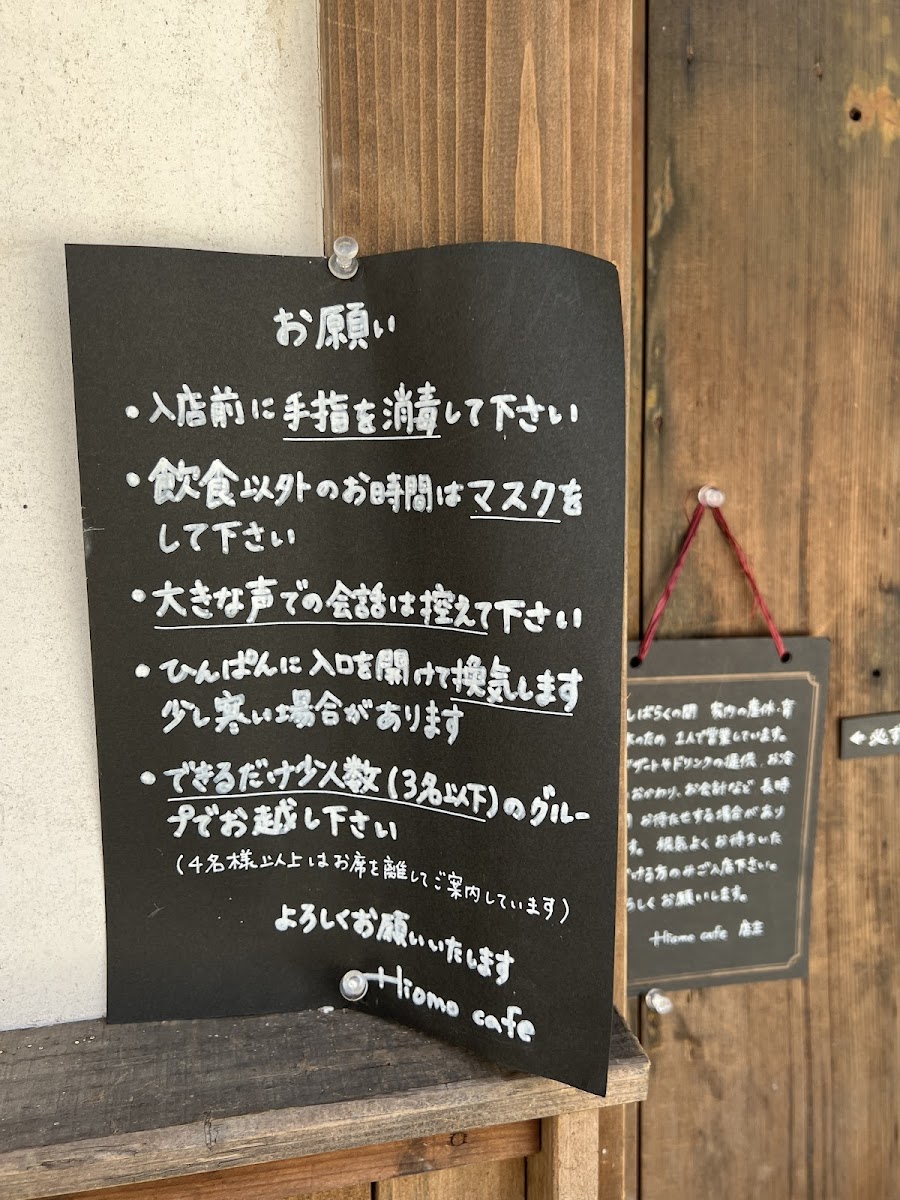 お願い
・入店前に手指を消毒して下さい
・飲食以外のお時間はマスクを
して下さい
・大きな声での会話は控えて下さい
・ひんぱんに入口を開けて換気します
少し寒い場合があります
・できるだけ少人数(3名以下)のグルー
プでお越し下さい
(4名様以上はお席を離してご案内しています)
よろしくお願いいたします
Hiomo cafe
しばらくの間 家内の産休・育
のため 1人で営業しています。
ザートやドリンクの提供、お冷
おかわり、お会計など 長時
お待たせする場合があり
す。根気よくお待ちいた
ける方のみご入店下さい。
ろしくお願いします。
Hiomo cafe 店主
← 必ず